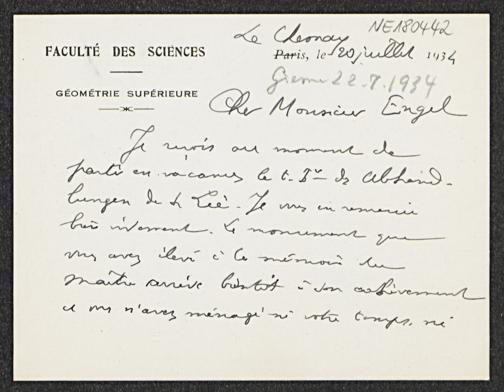 NE180442
Le Chesnay
FACULTÉ DES SCIENCES
Paris, le 20 juillet 1934
22.7.1934
GÉOMÉTRIE SUPÉRIEURE
Cher Monsieur Engel
Je reçois au moment de
partir en vacances le t. IV de Abhand-
lungen de S. Lie. Je vous en remercie
bien vivement. Le monument que
vous avez élevé à la mémoire du
maître arrive bientôt à son achèvement
et vous n'avez ménagé ni votre temps, ni